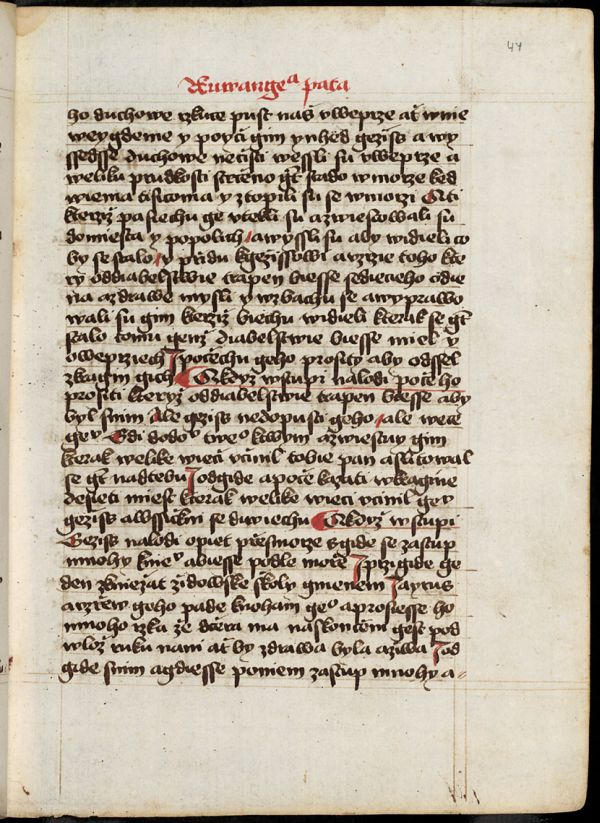 47
ho duchowe rzkuce pust nás vweprze ať wnie
weygdeme y poyči gim ynhed gezíss a wy
ssedsse duchowe nečisti wessli su vweprze a
weliku prudkosti strčeno gt stado wmorze ked
wiema tisicoma y ztopili su se wmorzi A ti
kteríž pasiechu ge vtekli su azwiestowali su
domiesta y popolich / awyssli su aby widieli co
by se stalo / y přidu kgezissowi auzrzie toho kte
ry oddiabelstwie trapen biesse sedicieho odie
na azdrawe mysli y wzbachu se awyprawo
wali su gim kterziž biechu widieli kterak se gt
stalo tomu genž diabelstwie biesse miel y
oweprziech I počechu geho prosity aby odssel
zkagin gich A kdyz wstupi nalodi poče ho
prositi kteryž oddiabelstwie trapen biesse aby
byl snim Ale geziss nedopusti geho / ale wece
geu Gdi dodou tweo ktwym azwiestuy gim
kterak welike wieci včinil tobie pan aslitowal
se gt nadtebu I odgide apoče kazati wkragine
desieti miest kterak welike wieci včinil geu
geziss awssickni se diwiechu A když wstupi
Geziss nalodi opiet přesmorze sgide se zastup
mnohy knieu abiesse podle moře I przigide ge
den zkniežat židowske školy gmenem Jayrus
auzřew geho pade knoham geo aprosiesse ho
mnoho rzka že dcera ma naskončení gest pod
wlož ruku nani ať by zdrawa byla aziwa I od
gide snim agdiesse poniem zastup mnohy a